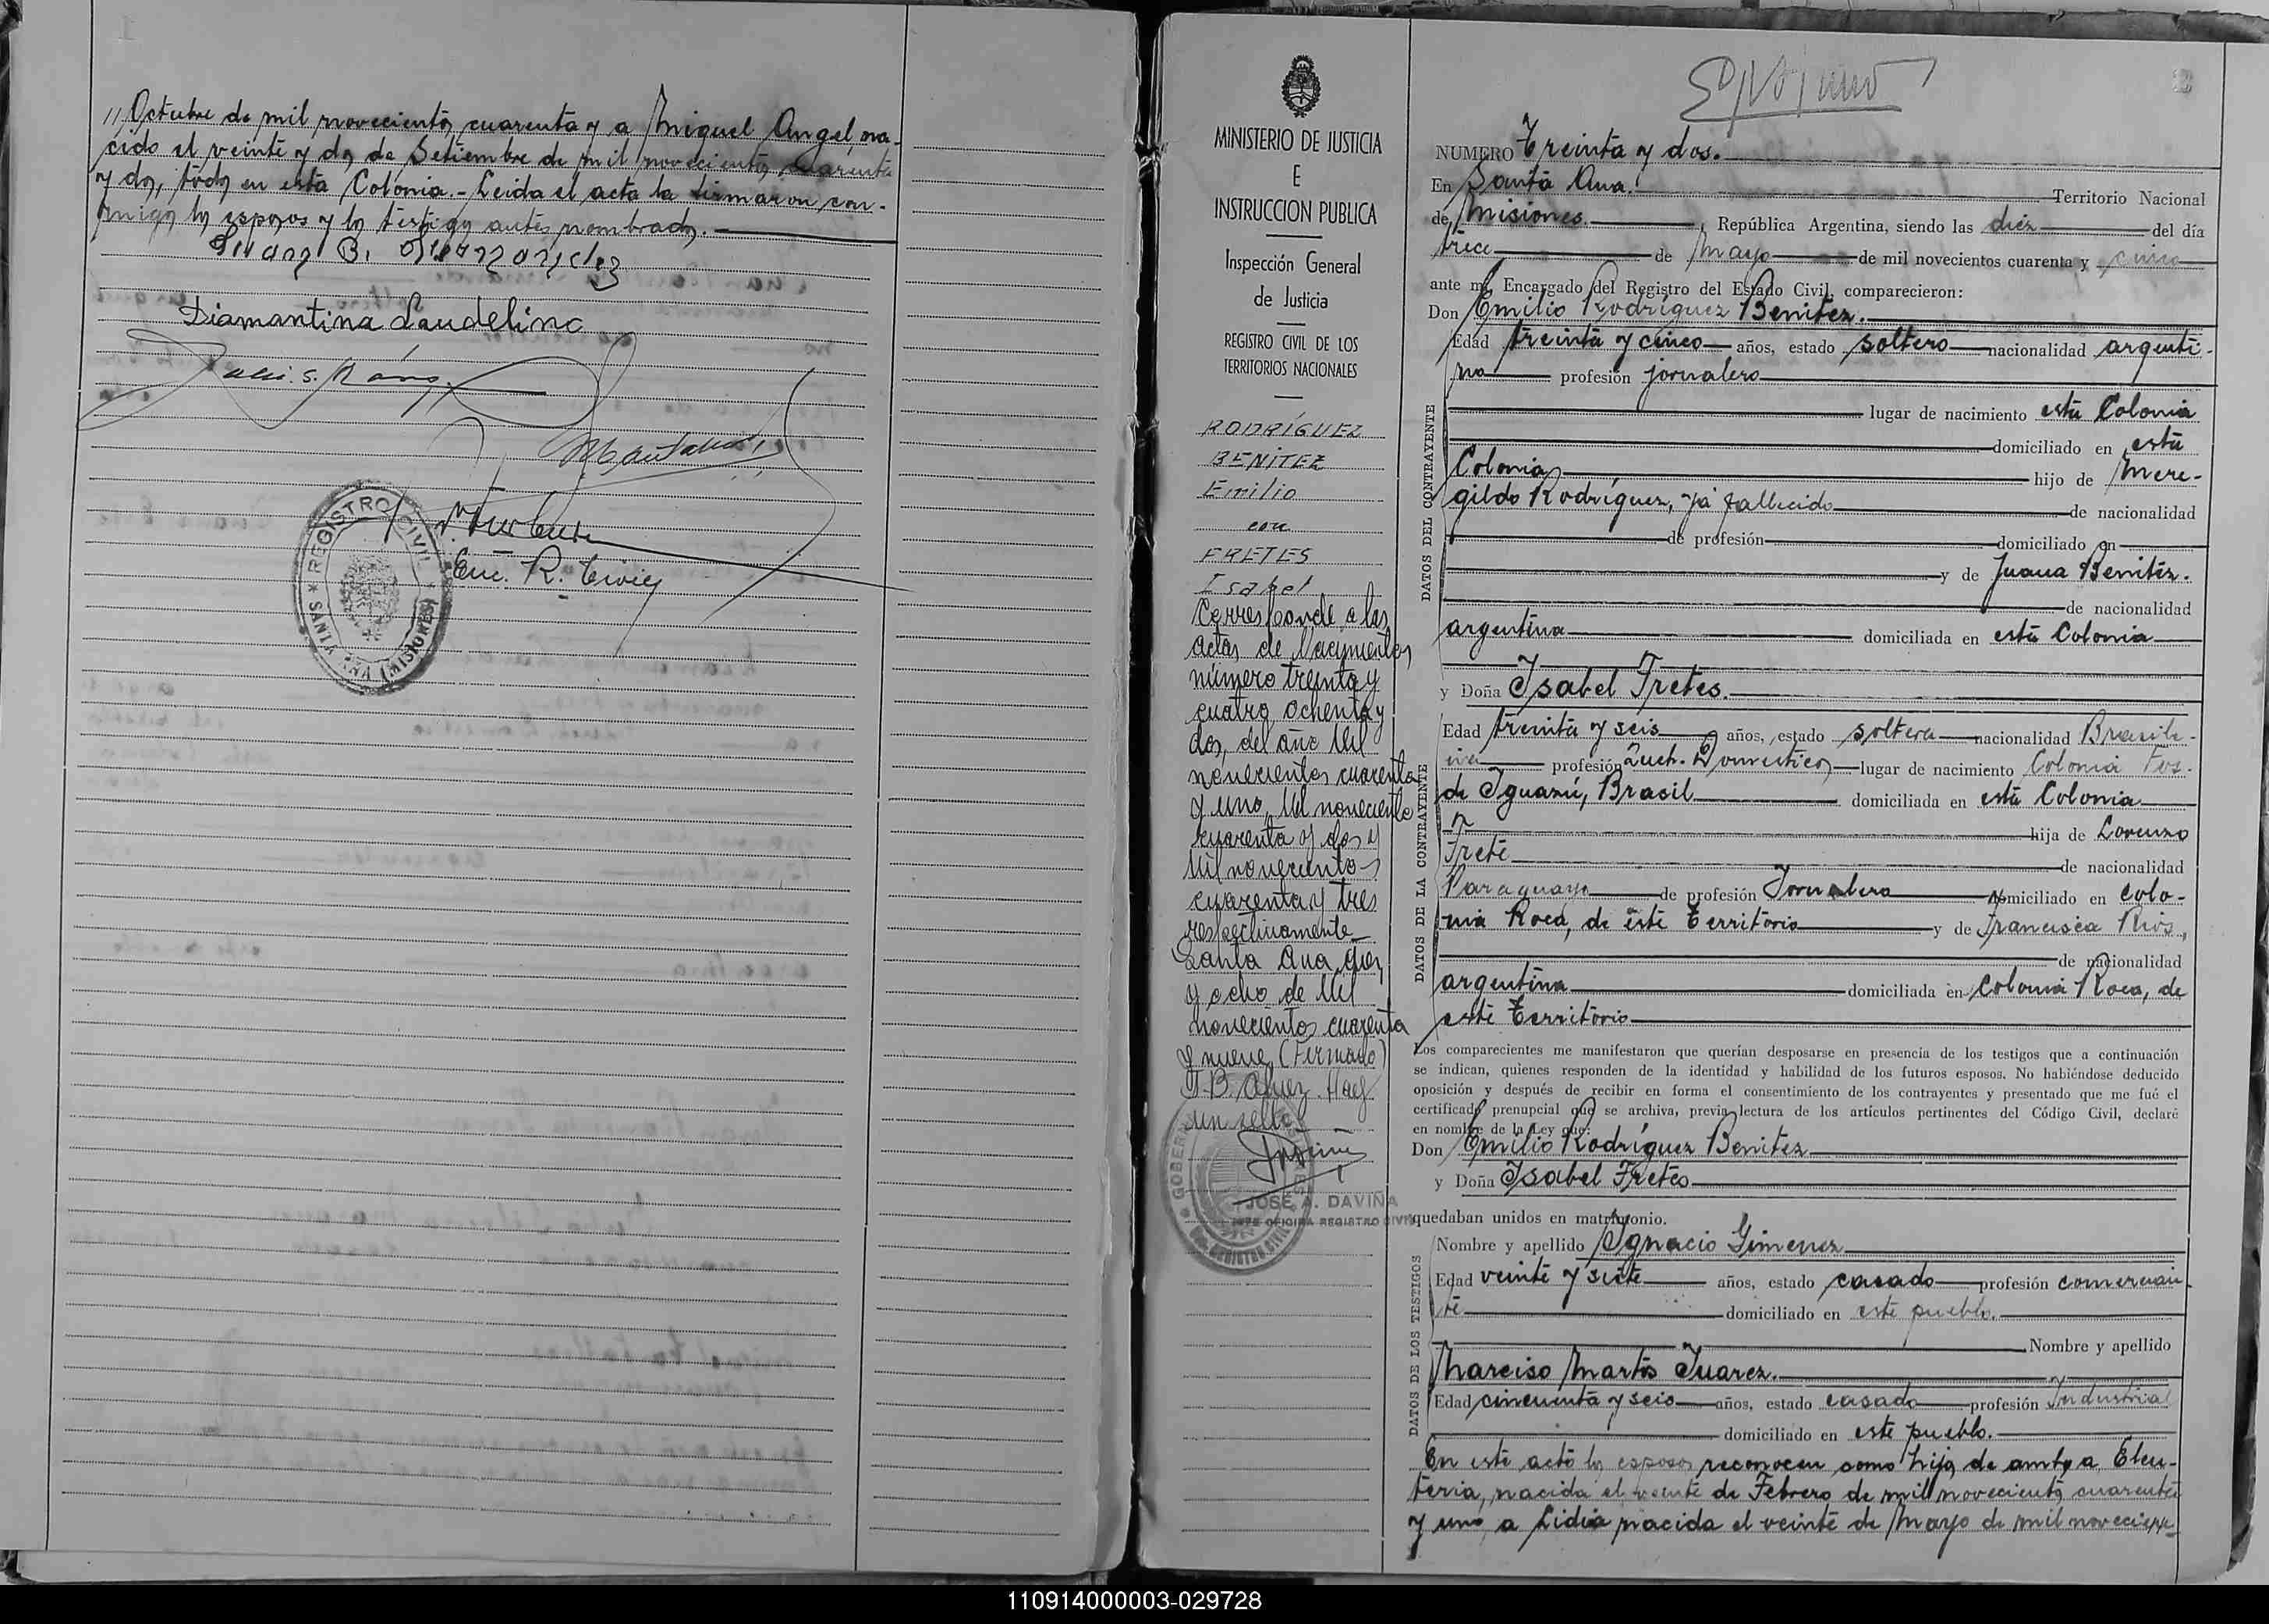 11 Octubre de mil novecientos cuarenta y a Miguel Angel, na-
cido el veinte y dos de Setiembre de mil novecientos cuarenta
y dos, todos en esta Colonia.- Leida el acta la firmaron con-
migo los esposos y los testigos antes nombrados.
Diamantina Laudelino
REGISTRO CIVIL
SANTA ANA (MISIONES)
Enc. R. Civil
MINISTERIO DE JUSTICIA
E
INSTRUCCION PUBLICA
Inspección General
de Justicia
REGISTRO CIVIL DE LOS
TERRITORIOS NACIONALES
RODRÍGUEZ
BENITEZ
Emilio
con
FRETES
Isabel
Corresponde a las
actas de Nacimientos
número treinta y
cuatro ochenta y
dos, del año Mil
novecientos cuarenta
y uno, Mil novecientos
cuarenta y dos y
Mil novecientos
cuarenta y tres
respectivamente
Santa Ana diez
y ocho de Mil
novecientos cuarenta
y nueve (Firmado)
Hay
un sello
JOSÉ A. DAVIÑA
JEFE OFICINA REGISTRO CIVIL
3
NUMERO Treinta y dos.
En Santa Ana. Territorio Nacional
de Misiones. , República Argentina, siendo las diez del día
trece de Mayo de mil novecientos cuarenta y cinco
ante mí, Encargado del Registro del Estado Civil, comparecieron:
Don Emilio Rodríguez Benitez.
DATOS DEL CONTRAYENTE
Edad treinta y cinco años, estado soltero nacionalidad argenti-
na profesión jornalero
lugar de nacimiento esta Colonia
domiciliado en esta
Colonia hijo de Mere-
gildo Rodríguez, ya fallecido de nacionalidad
de profesión domiciliado en
y de Juana Benitez.
de nacionalidad
argentina domiciliada en esta Colonia
y Doña Isabel Fretes.
DATOS DE LA CONTRAYENTE
Edad treinta y seis años, estado soltera nacionalidad Brasile-
ña profesión Queh. Domesticos lugar de nacimiento Colonia Fos-
de Iguazú, Brasil domiciliada en esta Colonia
hija de Lorenzo
Frete de nacionalidad
Paraguayo de profesión Jornalero domiciliado en Colo-
nia Roca, de este Territorio y de Francisca Rios,
de nacionalidad
argentina domiciliada en Colonia Roca, de
este Territorio
Los comparecientes me manifestaron que querían desposarse en presencia de los testigos que a continuación
se indican, quienes responden de la identidad y habilidad de los futuros esposos. No habiéndose deducido
oposición y después de recibir en forma el consentimiento de los contrayentes y presentado que me fué el
certificado prenupcial que se archiva, previa lectura de los artículos pertinentes del Código Civil, declaré
en nombre de la Ley que:
Don Emilio Rodríguez Benitez
y Doña Isabel Fretes
quedaban unidos en matrimonio.
DATOS DE LOS TESTIGOS
Nombre y apellido Ignacio Gimenez
Edad veinte y siete años, estado casado profesión comercian-
te domiciliado en este pueblo.
Nombre y apellido
Narciso Martos Juarez.
Edad cincuenta y seis años, estado casado profesión Industrial
domiciliado en este pueblo.
En este acto los esposos reconocen como hijos de ambos a Eleu-
teria, nacida el veinte de Febrero de mil novecientos cuarenta
y uno a Lidia nacida el veinte de Mayo de mil novecien-
110914000003-029728